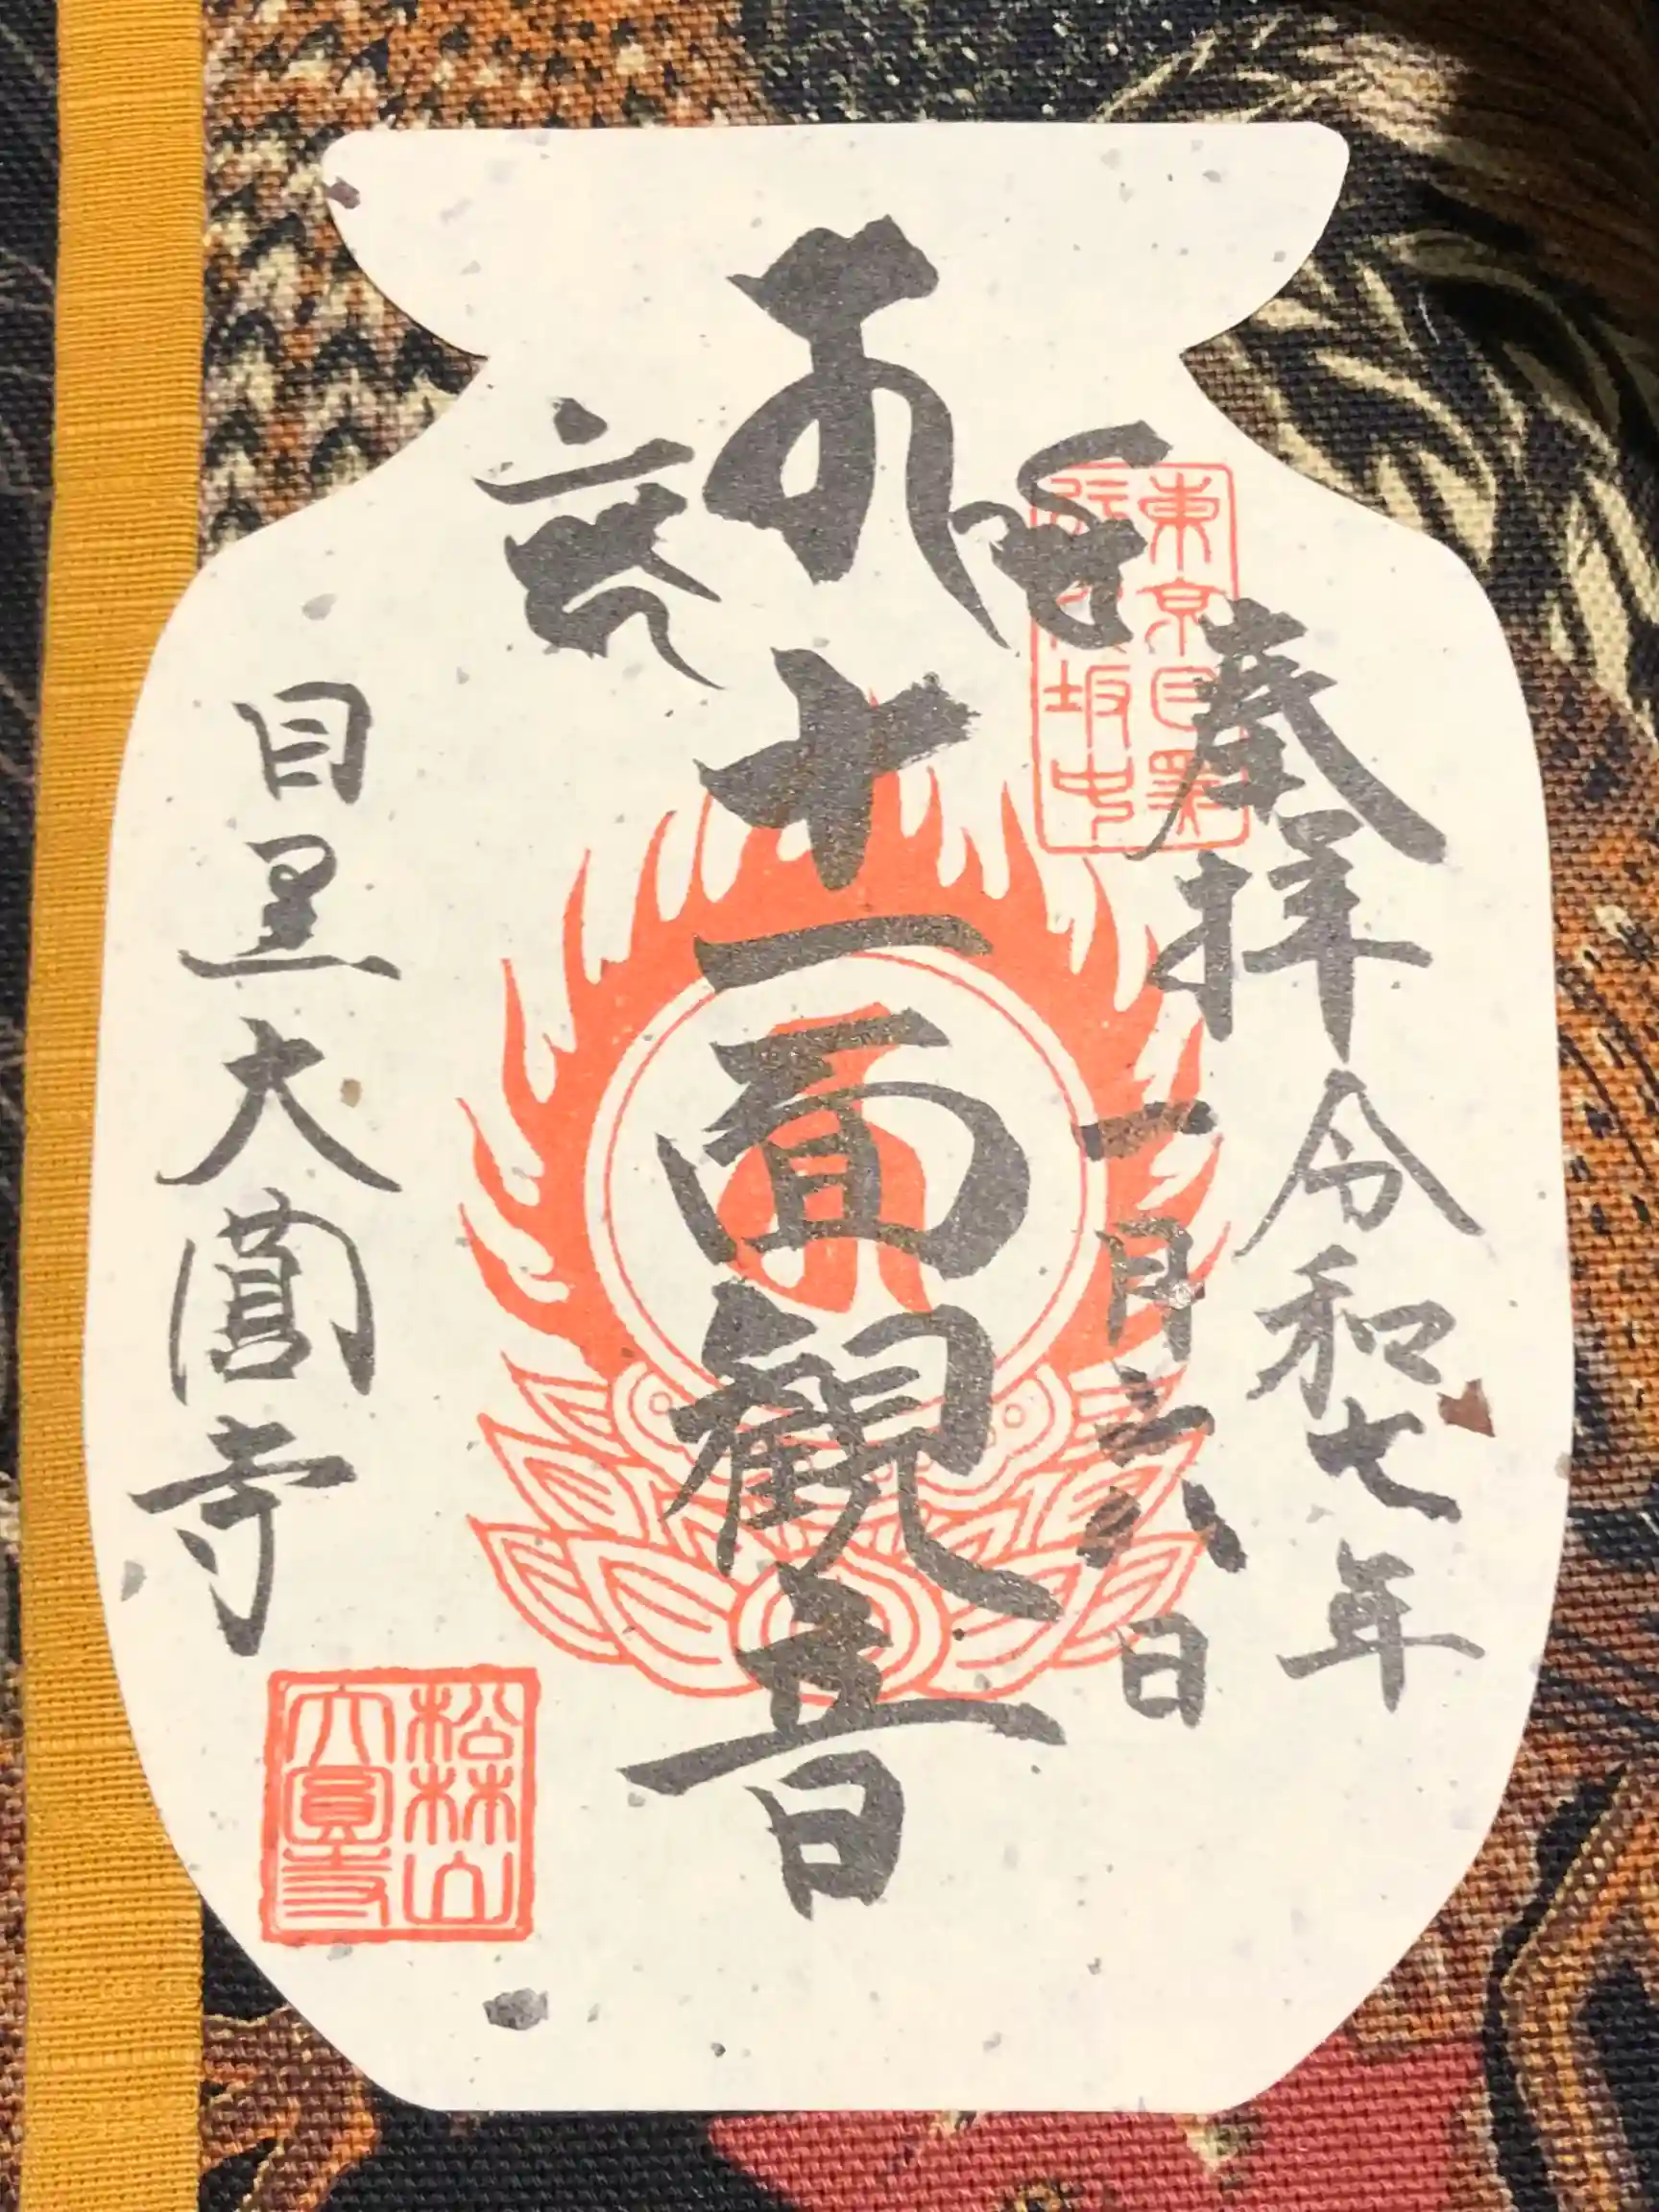 奉拝 令和七年
一月二八日
東京目黒
行人坂中
十一面観音
目黒大圓寺
松林山
大圓寺